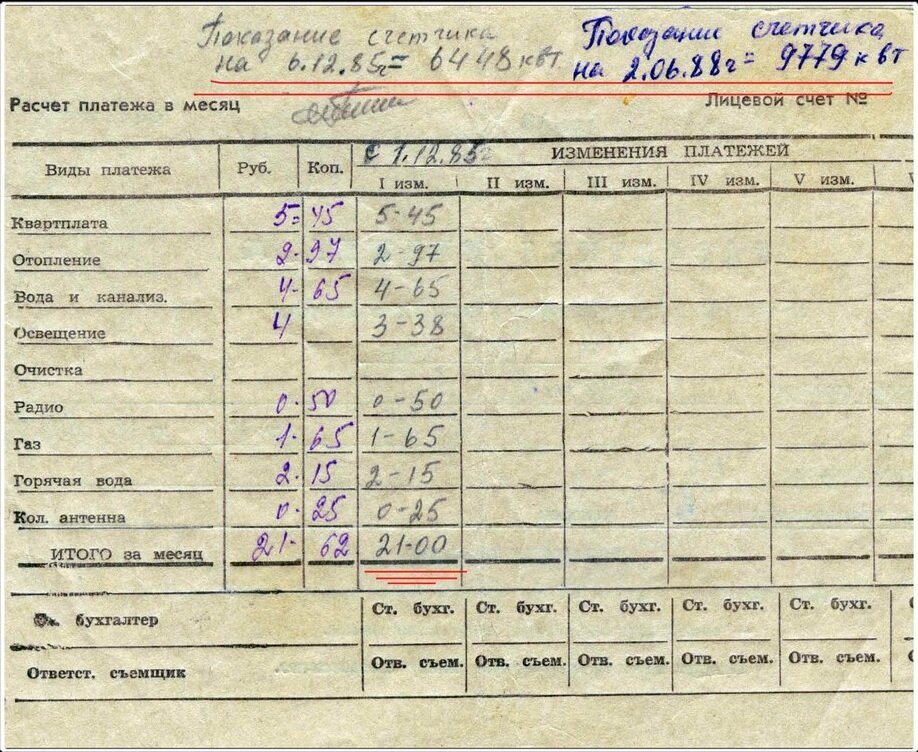 Показание счетчика
на 6.12.85г= 6448 квт
Показание счетчика
на 2.06.88г= 9779 квт
Расчет платежа в месяц
Лицевой счет №
Виды платежа Руб. Коп. с 1.12.85г ИЗМЕНЕНИЯ ПЛАТЕЖЕЙ
I изм. II изм. III изм. IV изм. V изм.
Квартплата 5= 45 5-45
Отопление 2. 97 2-97
Вода и канализ. 4- 65 4-65
Освещение 4 3-38
Очистка
Радио 0. 50 0-50
Газ 1. 65 1-65
Горячая вода 2. 15 2-15
Кол. антенна 0. 25 0-25
ИТОГО за месяц 21- 62 21-00
бухгалтер Ст. бухг. Ст. бухг. Ст. бухг. Ст. бухг. Ст. бухг.
Ответст. съемщик Отв. съем. Отв. съем. Отв. съем. Отв. съем. Отв. съем.